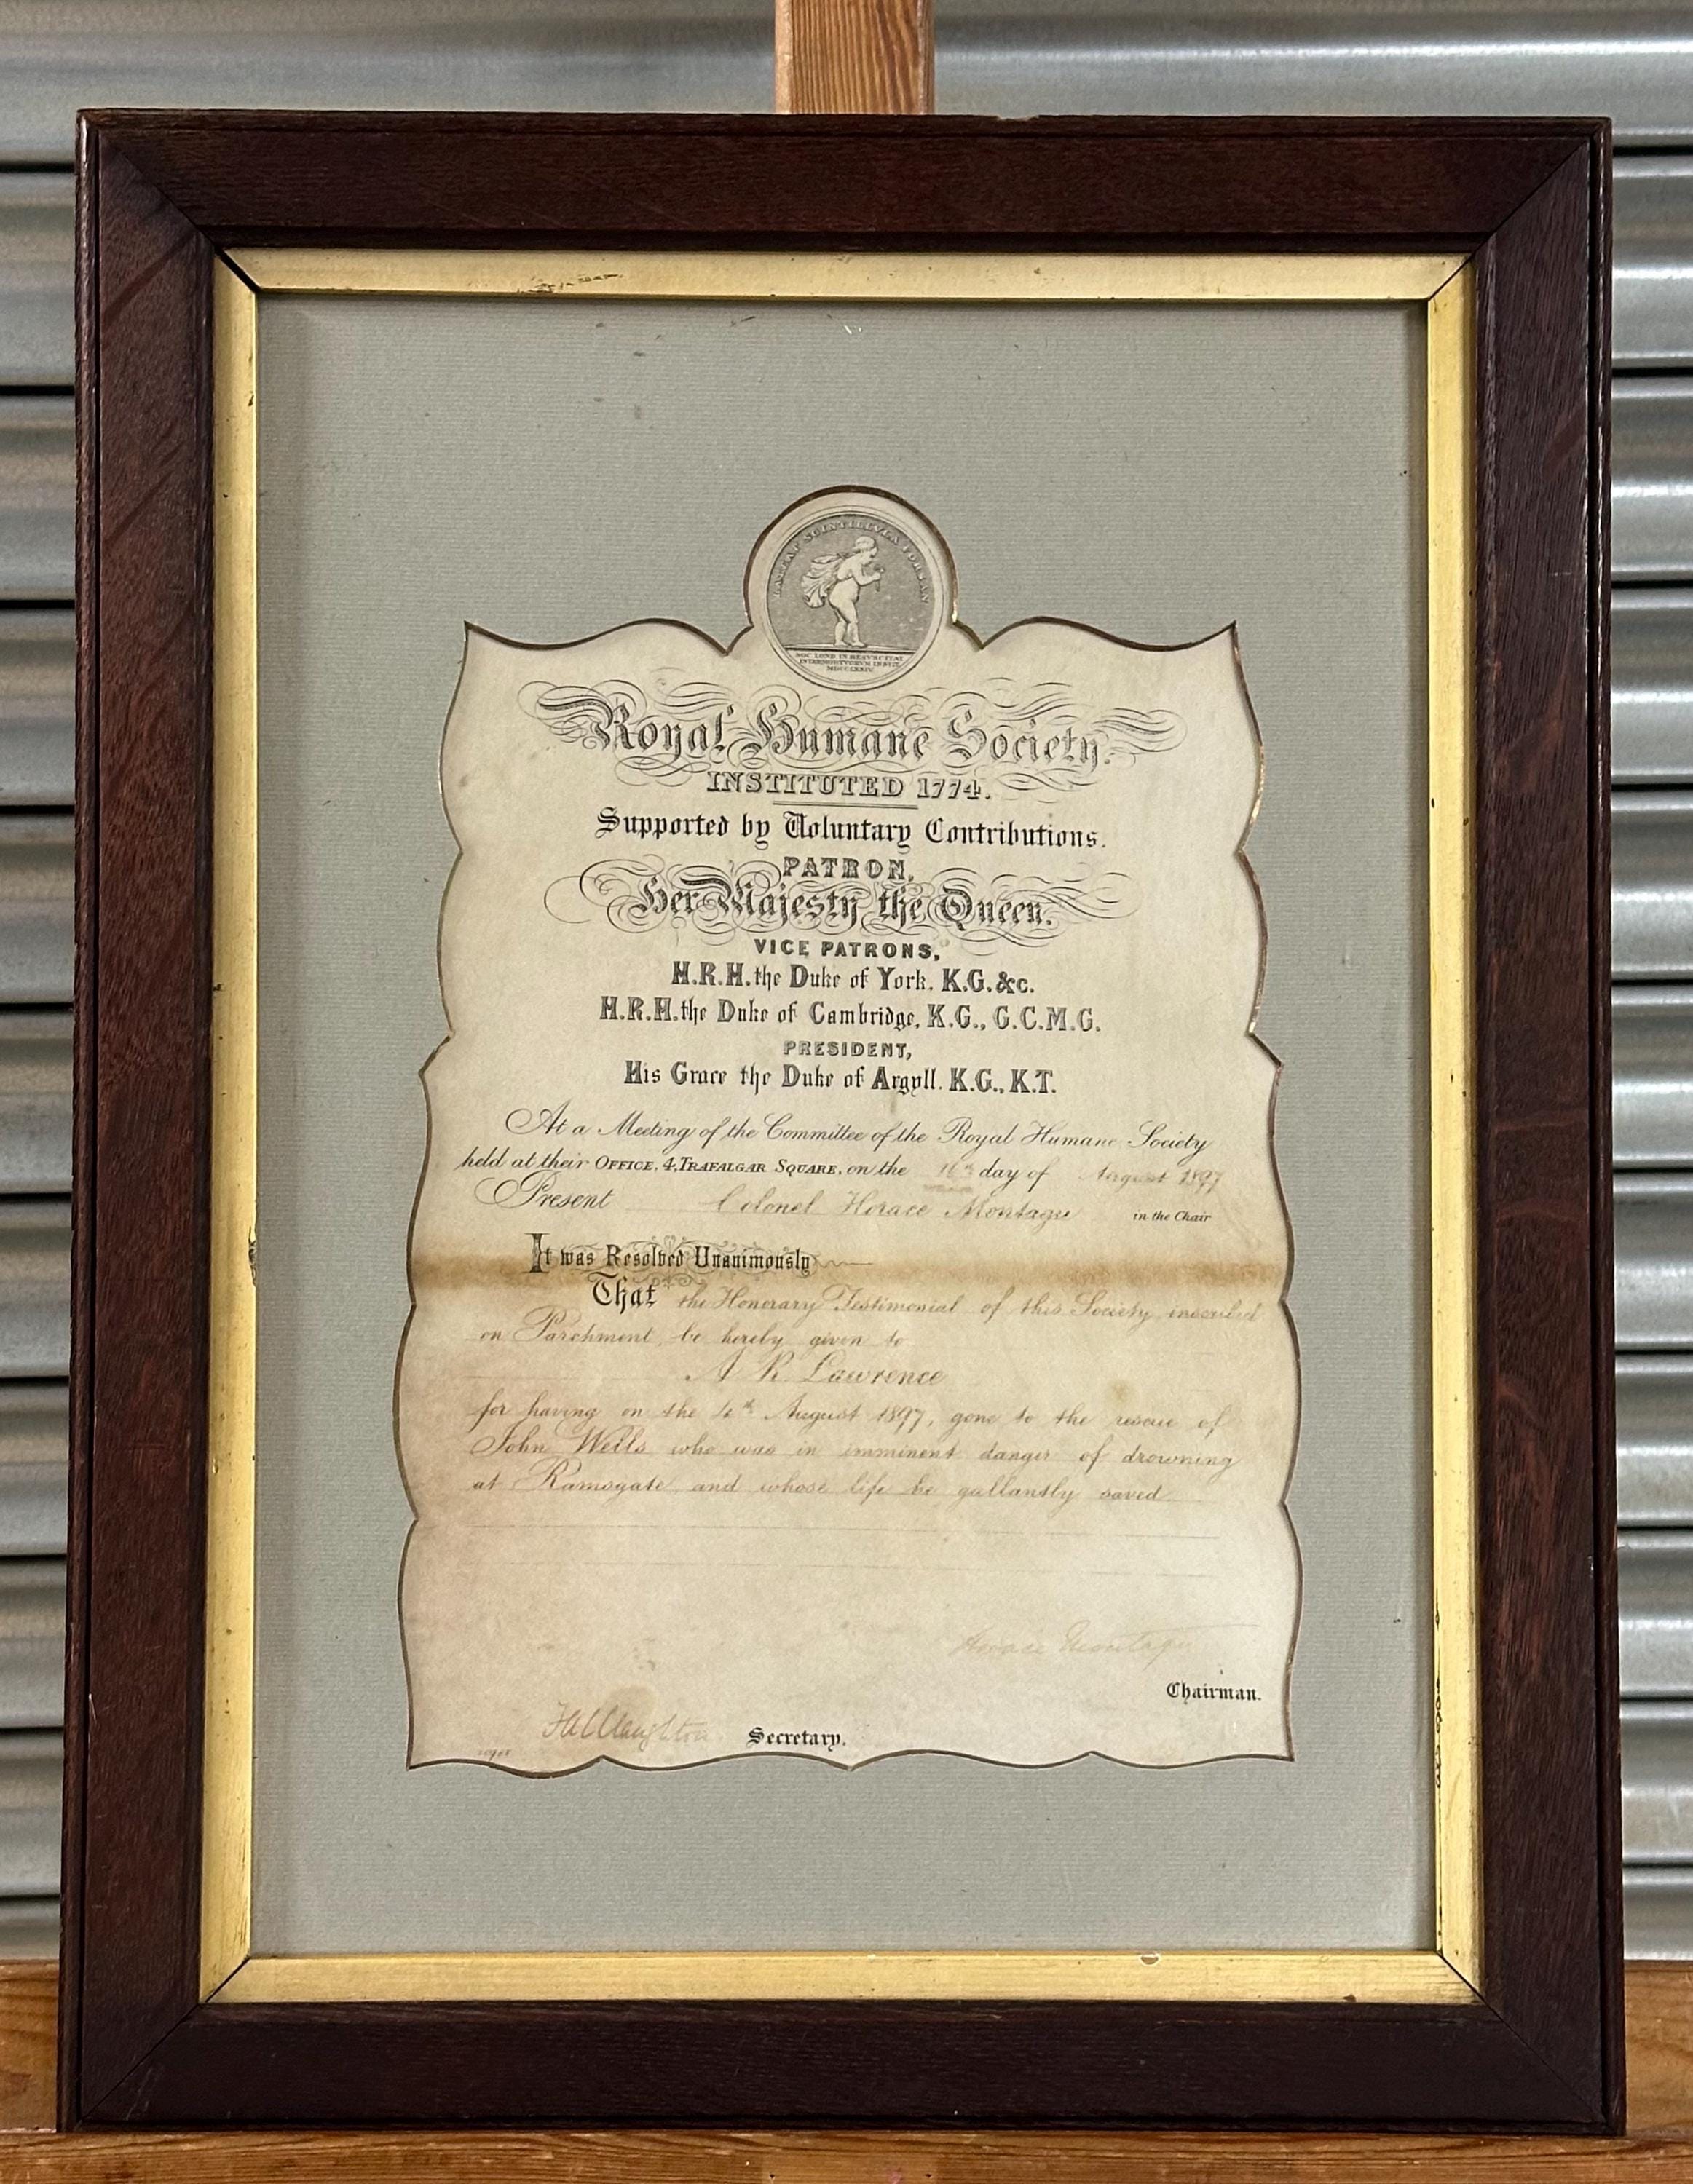 LATEAT SCINTILLVLA FORSAN
SOC. LOND. IN RESVSCITAT
INTERMORTVORVM INSTIT.
MDCCLXXIV
Royal Humane Society.
INSTITUTED 1774.
Supported by Voluntary Contributions.
PATRON,
Her Majesty the Queen.
VICE PATRONS,
H.R.H. the Duke of York. K.G. &c.
H.R.H. the Duke of Cambridge, K.G., G.C.M.G.
PRESIDENT,
His Grace the Duke of Argyll. K.G., K.T.
At a Meeting of the Committee of the Royal Humane Society
held at their OFFICE, 4, TRAFALGAR SQUARE, on the 16th day of August 1897
Present Colonel Horace Montagu in the Chair
It was Resolved Unanimously
That the Honorary Testimonial of this Society inscribed
on Parchment be hereby given to
A R. Lawrence
for having on the 4th August 1897, gone to the rescue of
John Wells who was in imminent danger of drowning
at Ramsgate, and whose life he gallantly saved.
Horace Montagu
Chairman.
Claughton Secretary.